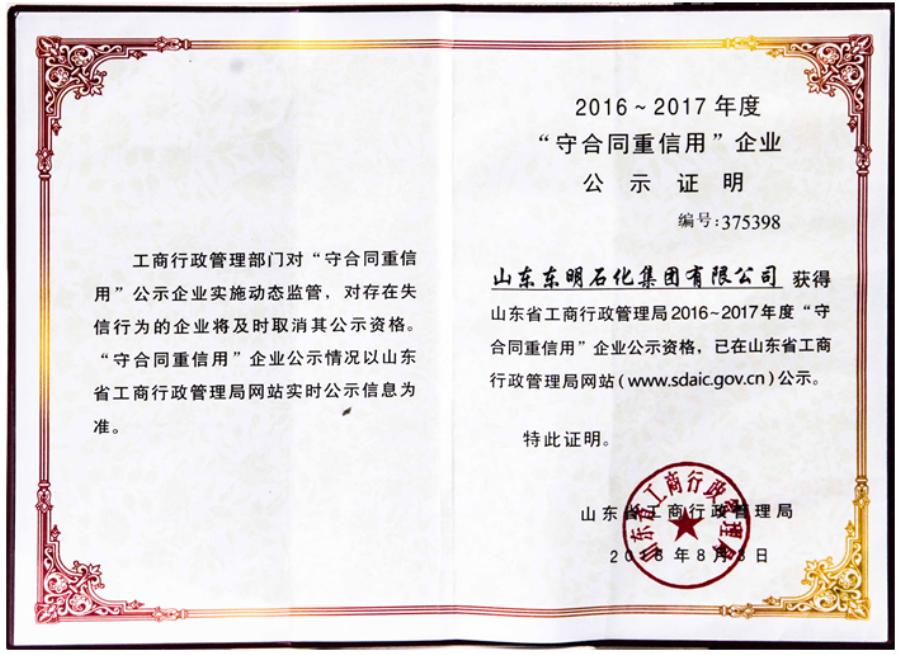 工商行政管理部门对“守合同重信
用”公示企业实施动态监管,对存在失
信行为的企业将及时取消其公示资格。
“守合同重信用”企业公示情况以山东
省工商行政管理局网站实时公示信息为
准。
2016~2017年度
“守合同重信用”企业
公示证明
编号:375398
山东东明石化集团有限公司 获得
山东省工商行政管理局2016~2017年度“守
合同重信用”企业公示资格,已在山东省工商
行政管理局网站(www.sdaic.gov.cn)公示。
特此证明。
山东省工商行政管理局
2018年8月8日
山东省工商行政管理局